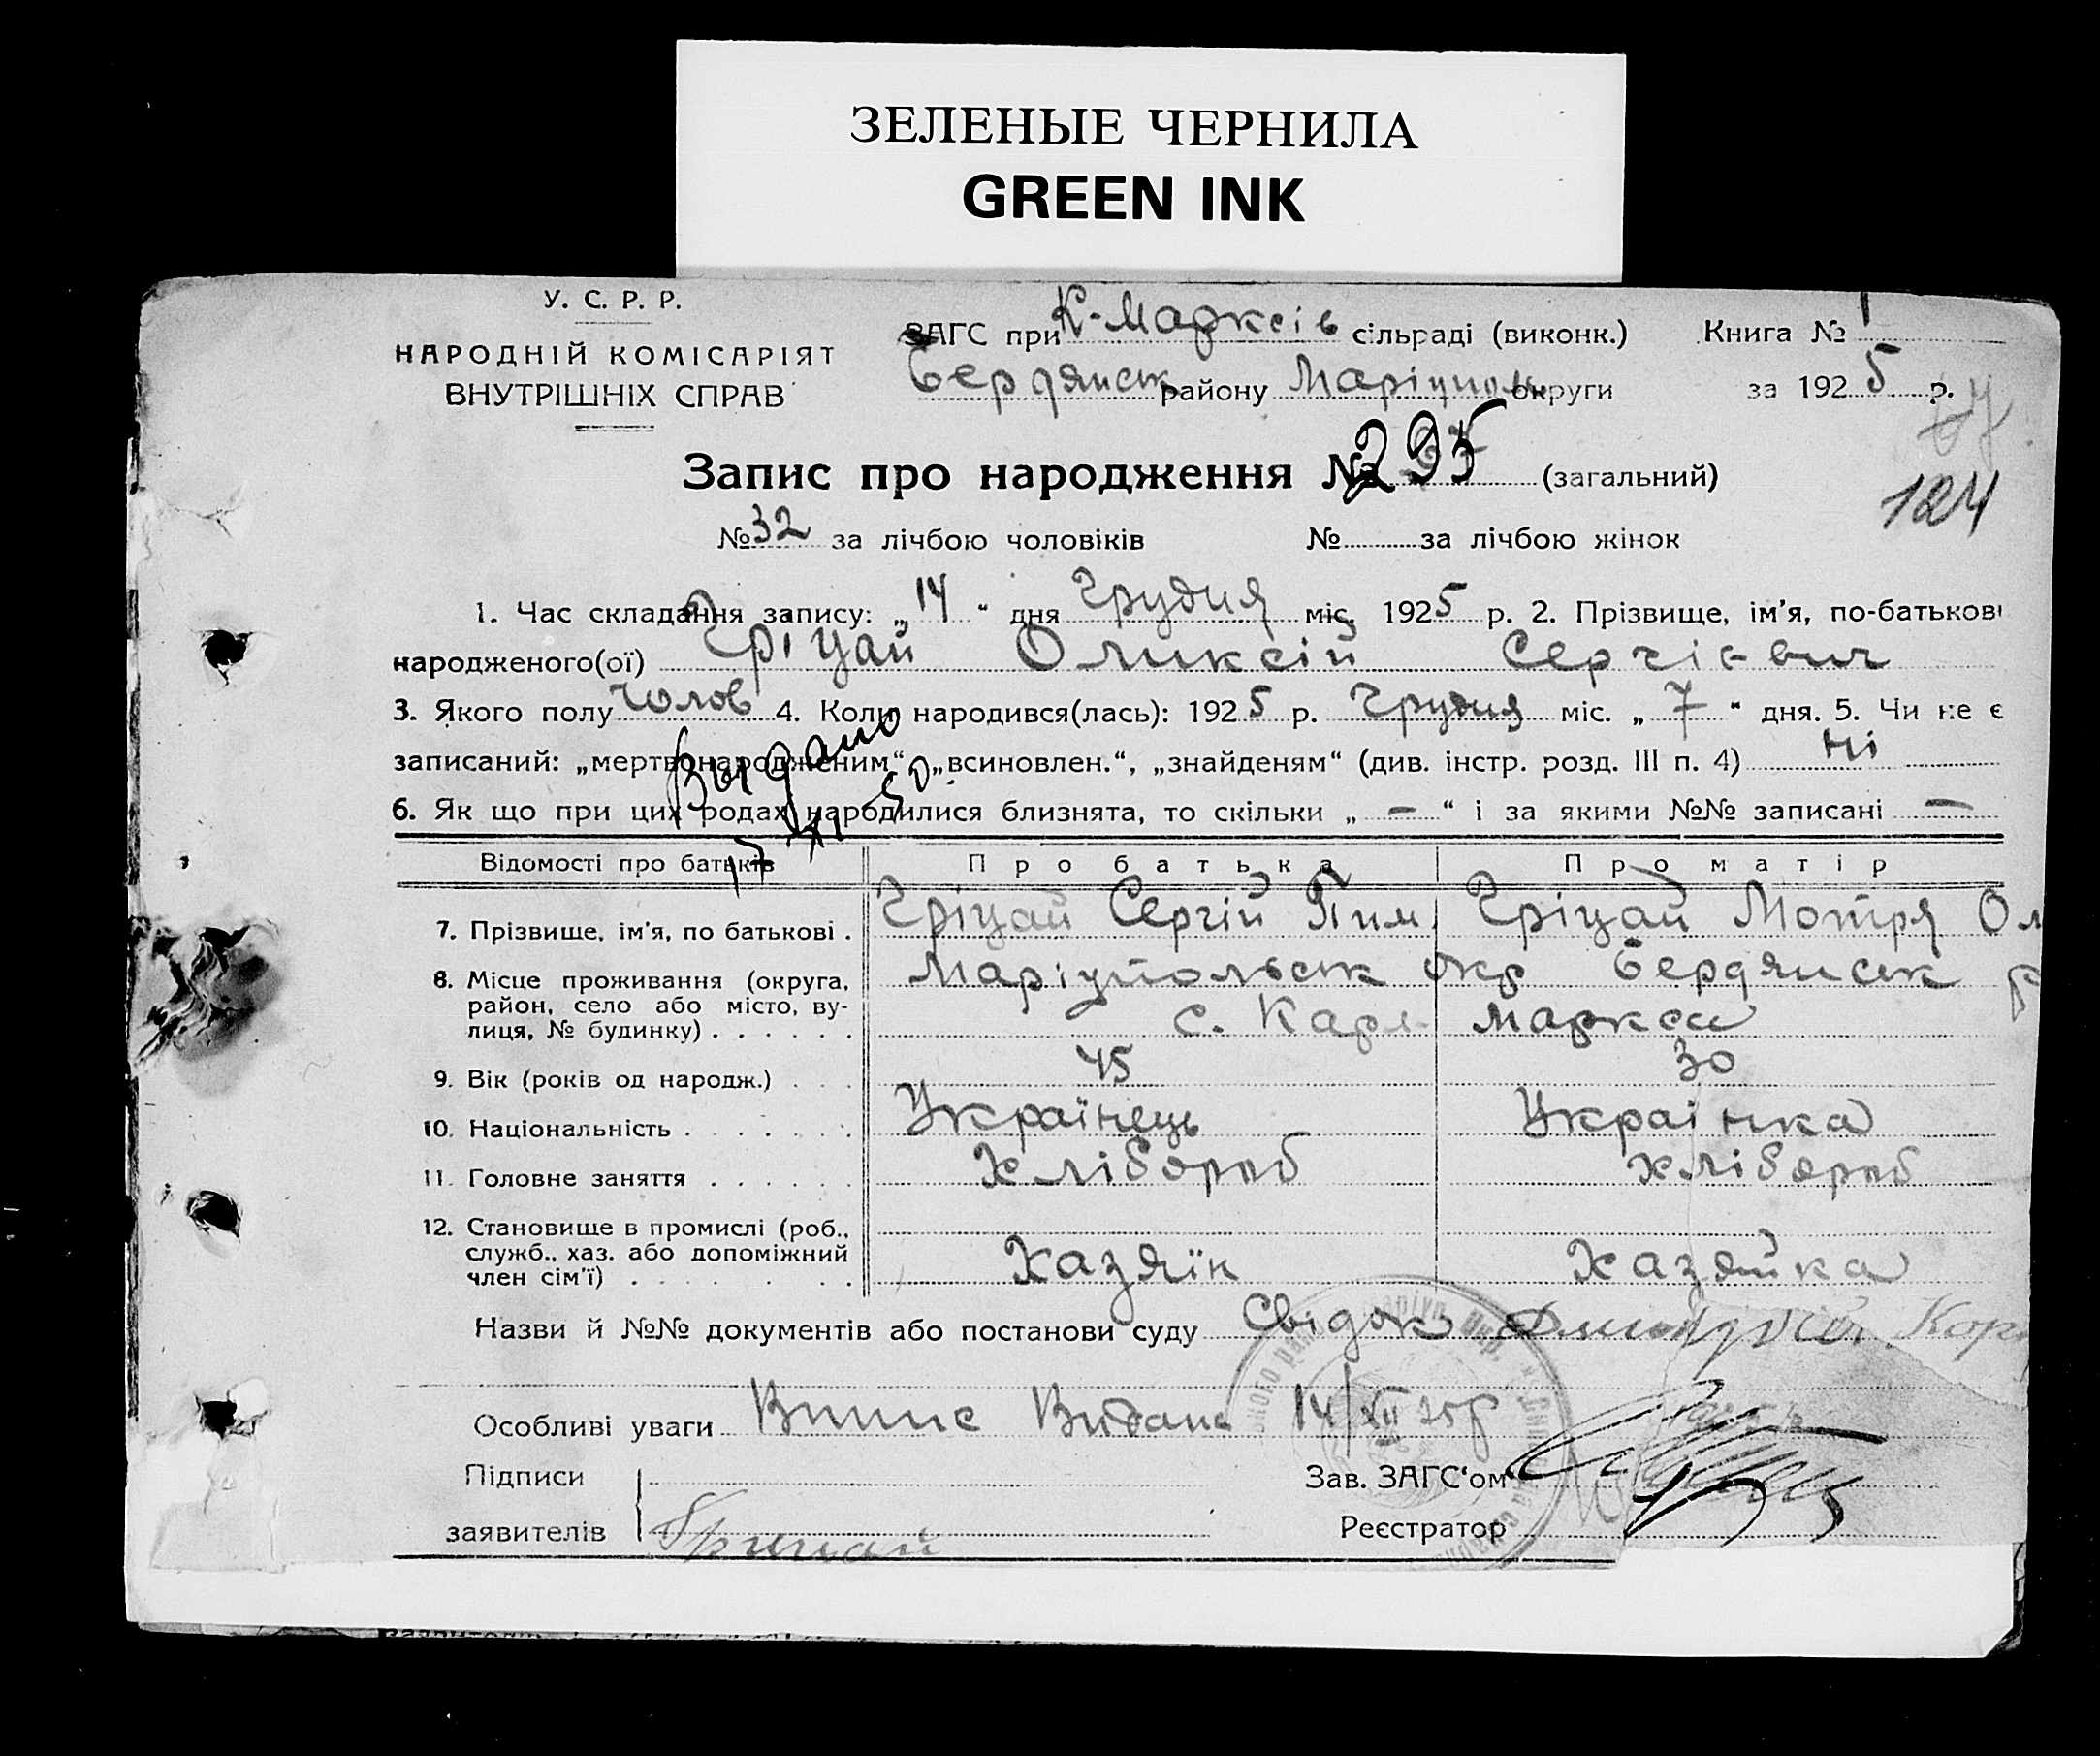 ЗЕЛЕНЫЕ ЧЕРНИЛА
GREEN INK
У. С. Р. Р.
НАРОДНІЙ КОМІСАРІЯТ
ВНУТРІШНІХ СПРАВ
ЗАГС при К-Марксів сільраді (виконк.) Книга № 1
Бердянськ району Маріуполь округи за 1925 р.
Запис про народження № 295 (загальний)
124
№ 32 за лічбою чоловіків № за лічбою жінок
1. Час складання запису: „14“ дня Грудня міс. 1925 р. 2. Прізвище, ім'я, по-батькові
народженого(ої) Гріцай Оликсій Сергієвич
3. Якого полу Чолов 4. Коли народився(лась): 1925 р. Грудня міс. „7“ дня. 5. Чи не є
записаний: „мертвонародженим“, „всиновлен.“, „знайденям“ (див. інстр. розд. III п. 4) Ні
6. Як що при цих родах народилися близнята, то скільки „—“ і за якими №№ записані —
Выдано
17 XI 50
Відомості про батьків Про батька Про матір
7. Прізвище, ім'я, по батькові . Гріцай Сергій Пим. Гріцай Мотря Ол
8. Місце проживання (округа, район, село або місто, вулиця, № будинку) . . . . . . Маріупольск окр Бердянськ р
с. Карл Маркса
9. Вік (років од народж.) . . . 45 30
10. Національність . . . . . . . Українець Украінка
11. Головне заняття . . . . . . Хлібороб Хлібороб
12. Становище в промислі (роб., служб., хаз. або допоміжний член сім'ї) . . . . . . . Хазяїн Хазяйка
Назви й №№ документів або постанови суду Свідок
Особливі уваги Випис Видана 14/XII 25 р
Підписи Зав. ЗАГС'ом
заявителів Грицай Реєстратор